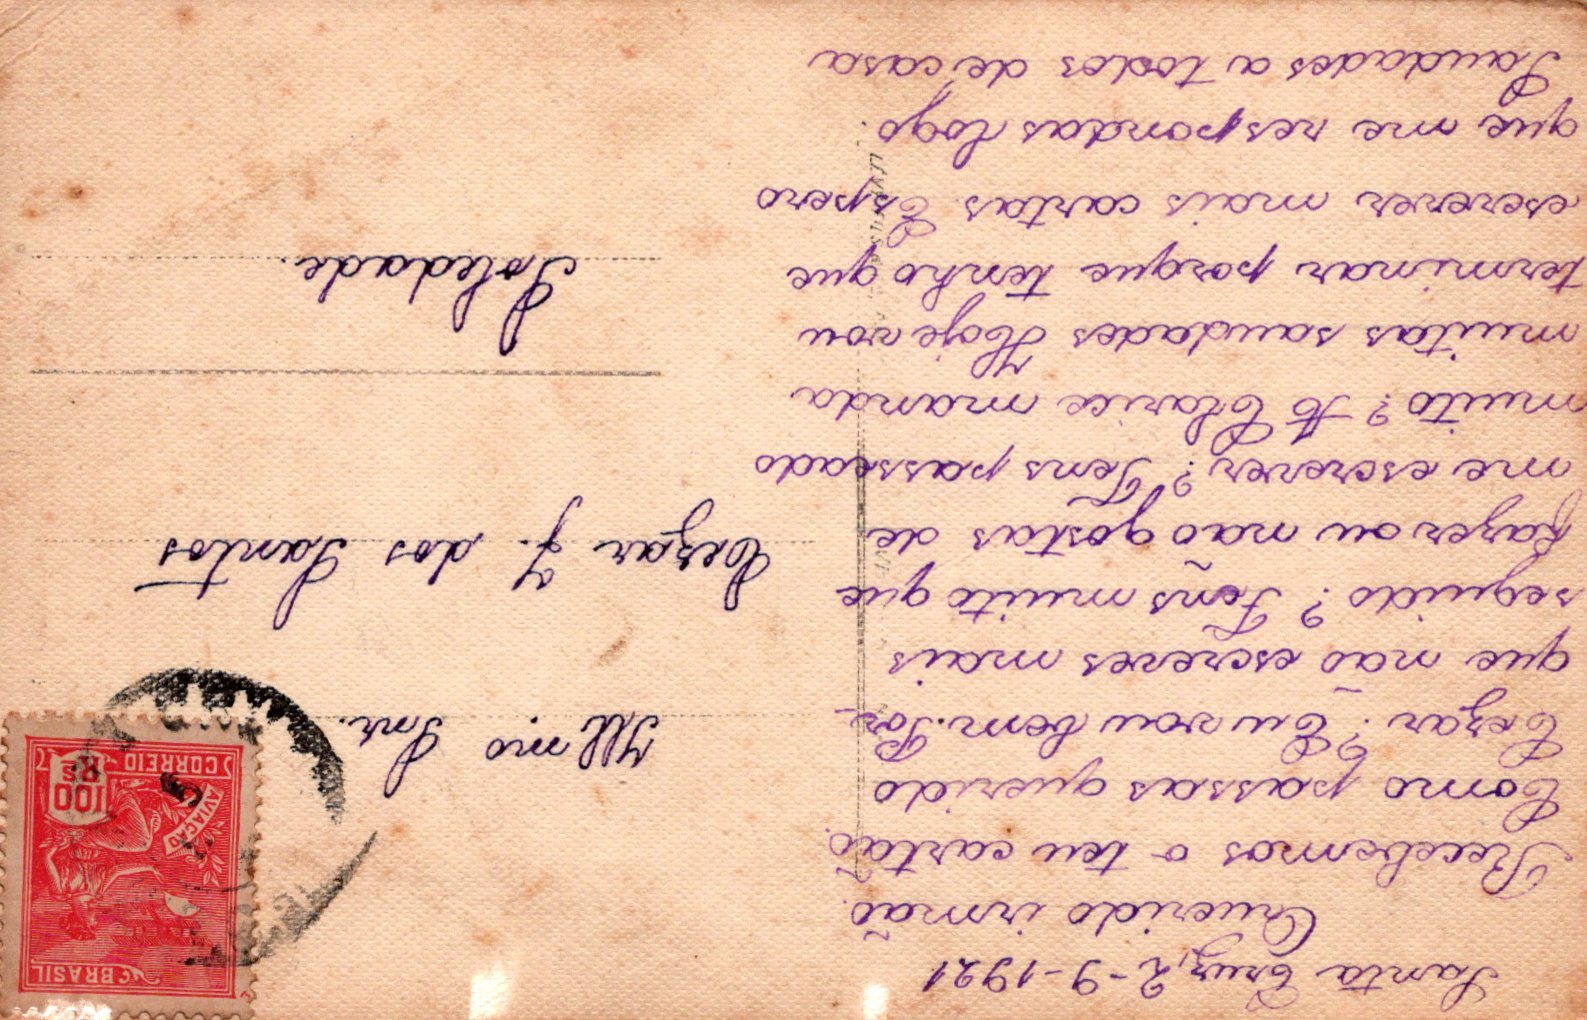 Santa Cruz, 2-9-1921
Querido irmão.
Recebemos o teu cartão.
Como passas querido
Cezar? Eu vou bem. Por
que não escreves mais
seguido? Tens muito que
fazer ou não gostas de
me escrever? Tens passeado
muito? A Clarice manda
muitas saudades Hoje vou
terminar porque tenho que
escrever mais cartas. Espero
que me respondas logo.
Saudades a todos de casa
Illmo. Snr.
Cezar J. dos Santos
Soledade.
BRASIL
AVIAÇÃO
100 RS
CORREIO